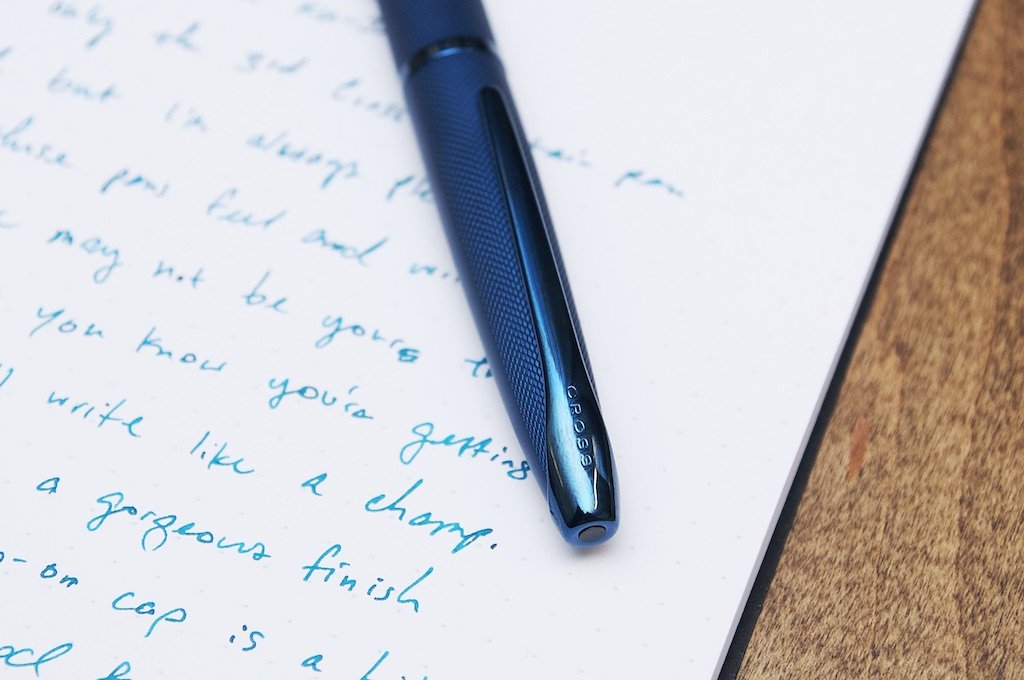 only the 3rd Cross
but I'm always pen
these pens feel and
may not be yours
you know you're getting
write like a champ.
a gorgeous finish
-on cap is a
CROSS